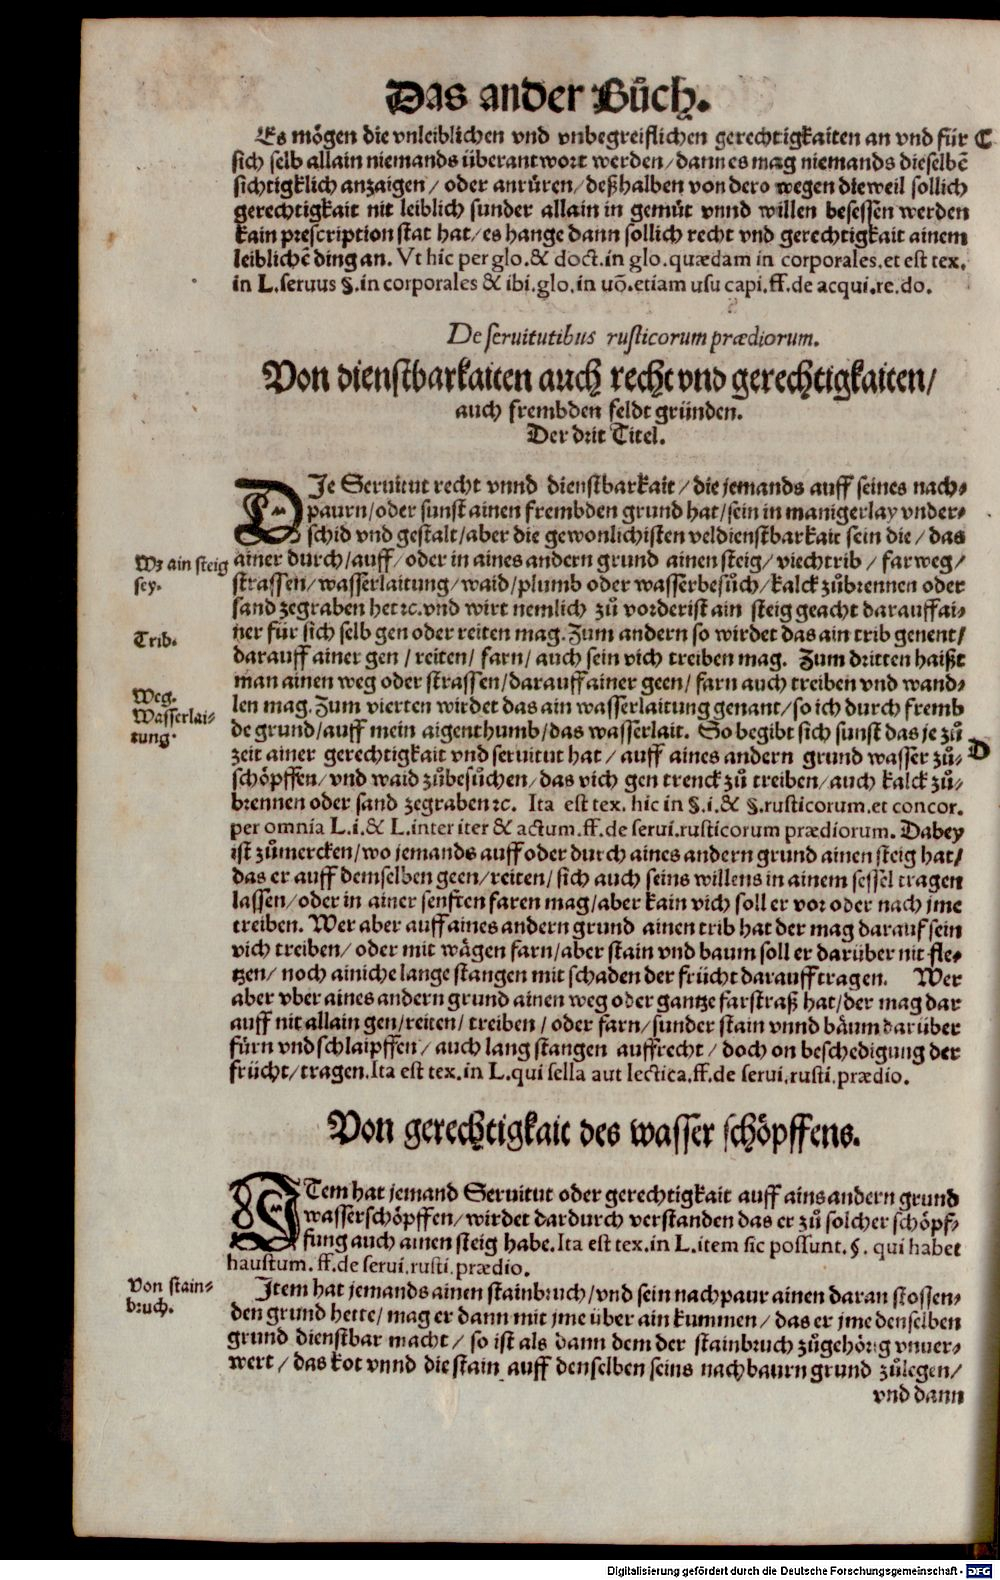 Das ander Bůch.
Es mögen die vnleiblichen vnd vnbegreiflichen gerechtigkaiten an vnd für C
sich selb allain niemands überantwort werden/ dann es mag niemands dieselbē
sichtigklich anzaigen/ oder anrüren/ deßhalben von dero wegen dieweil sollich
gerechtigkait nit leiblich sunder allain in gemůt vnnd willen besessen werden
kain prescription stat hat/ es hange dann sollich recht vnd gerechtigkait ainem
leiblichē ding an. Vt hic per glo.& doct.in glo.quædam in corporales.et est tex.
in L.seruus §.in corporales & ibi.glo.in uō.etiam usu capi.ff.de acqui.re.do.
De seruitutibus rusticorum prædiorum.
Von dienstbarkaiten auch recht vnd gerechtigkaiten/
auch frembden feldt gründen.
Der drit Titel.
DIe Seruitut recht vnnd dienstbarkait/ die jemands auff seines nach-
paurn/oder sunst ainen frembden grund hat/sein in manigerlay vnder-
schid vnd gestalt/aber die gewonlichisten veldienstbarkait sein die/ das
Wz ain steig
sey.
ainer durch/auff/ oder in aines andern grund ainen steig/ viechtrib/ farweg/
strassen/ wasserlaitung/ waid/ plumb oder wasserbesůch/ kalck zůbrennen oder
sand zegraben het ꝛc.vnd wirt nemlich zů vorderist ain steig geacht darauff ai-
Trib.
ner für sich selb gen oder reiten mag. Zum andern so wirdet das ain trib genent/
darauff ainer gen/ reiten/ farn/ auch sein vich treiben mag. Zum dritten haißt
man ainen weg oder strassen/darauff ainer geen/ farn auch treiben vnd wand-
Weg.
Wasserlai-
tung.
len mag. Zum vierten wirdet das ain wasserlaitung genant/ so ich durch fremb
de grund/auff mein aigenthumb/das wasserlait. So begibt sich sunst das je zů D
zeit ainer gerechtigkait vnd seruitut hat/ auff aines andern grund wasser zů-
schöpffen/ vnd waid zůbesůchen/ das vich gen trenck zů treiben/ auch kalck zů-
brennen oder sand zegraben ꝛc. Ita est tex. hic in §.i.& §.rusticorum.et concor.
per omnia L.i.& L.inter iter & actum.ff.de serui.rusticorum prædiorum. Dabey
ist zůmercken/wo jemands auff oder durch aines andern grund ainen steig hat/
das er auff demselben geen/reiten/ sich auch seins willens in ainem sessel tragen
lassen/oder in ainer senften faren mag/aber kain vich soll er vor oder nach jme
treiben. Wer aber auff aines andern grund ainen trib hat der mag darauf sein
vich treiben/ oder mit wägen farn/aber stain vnd baum soll er darüber nit fle-
tzen/ noch ainiche lange stangen mit schaden der frücht darauff tragen. Wer
aber vber aines andern grund ainen weg oder gantze farstraß hat/der mag dar
auff nit allain gen/reiten/ treiben/ oder farn/ sunder stain vnnd bäum darüber
fürn vnd schlaipffen/ auch lang stangen auffrecht/ doch on beschedigung der
frücht/ tragen.Ita est tex.in L.qui sella aut lectica.ff.de serui.rusti.prædio.
Von gerechtigkait des wasser schöpffens.
ITem hat jemand Seruitut oder gerechtigkait auff ains andern grund
wasserschöpffen/ wirdet dardurch verstanden das er zů solcher schöpf-
fung auch ainen steig habe.Ita est tex.in L.item sic possunt.§. qui habet
haustum. ff.de serui.rusti.prædio.
Von stain-
bruch.
Item hat jemands ainen stainbruch/vnd sein nachpaur ainen daran stossen-
den grund hette/ mag er dann mit jme über ain kummen/ das er jme denselben
grund dienstbar macht/ so ist als dann dem der stainbruch zůgehörig vnuer-
wert/ das kot vnnd die stain auff denselben seins nachbaurn grund zůlegen/
vnd dann
Digitalisierung gefördert durch die Deutsche Forschungsgemeinschaft - DFG